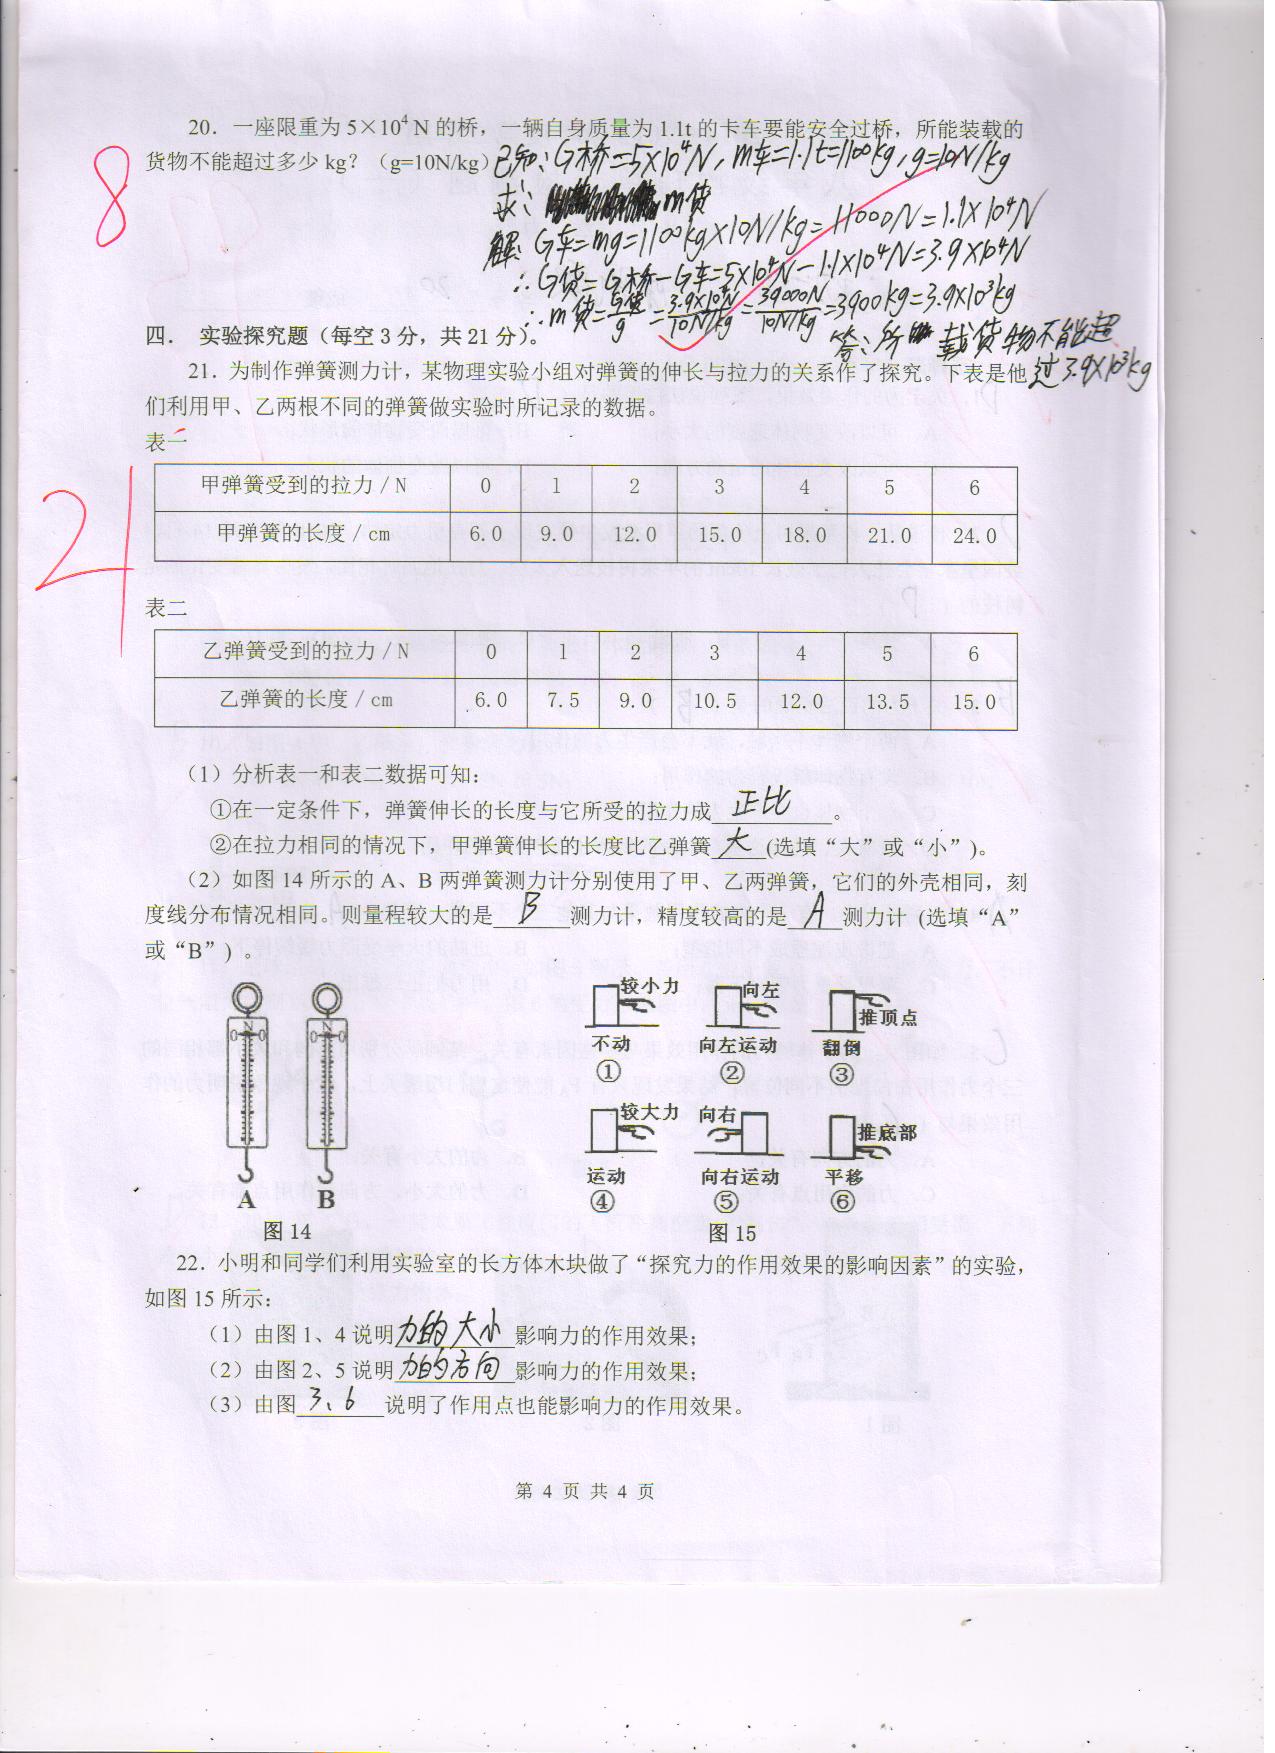 20．一座限重为 5×10⁴ N 的桥，一辆自身质量为 1.1t 的卡车要能安全过桥，所能装载的
货物不能超过多少 kg？（g=10N/kg）
已知：G桥=5×10⁴N，m车=1.1t=1100kg，g=10N/kg
求： m货
解：G车=mg=1100kg×10N/kg=11000N=1.1×10⁴N
∴G货=G桥－G车=5×10⁴N－1.1×10⁴N=3.9×10⁴N
∴m货=G货/g=3.9×10⁴N/10N/kg=39000N/10N/kg=3900kg=3.9×10³kg
答：所 载货物不能超
过3.9×10³kg
8
四． 实验探究题（每空 3 分，共 21 分）。
21．为制作弹簧测力计，某物理实验小组对弹簧的伸长与拉力的关系作了探究。下表是他
们利用甲、乙两根不同的弹簧做实验时所记录的数据。
21
表一
甲弹簧受到的拉力／N 0 1 2 3 4 5 6
甲弹簧的长度／cm 6.0 9.0 12.0 15.0 18.0 21.0 24.0
表二
乙弹簧受到的拉力／N 0 1 2 3 4 5 6
乙弹簧的长度／cm 6.0 7.5 9.0 10.5 12.0 13.5 15.0
（1）分析表一和表二数据可知：
①在一定条件下，弹簧伸长的长度与它所受的拉力成 正比 。
②在拉力相同的情况下，甲弹簧伸长的长度比乙弹簧 大 (选填“大”或“小”)。
（2）如图 14 所示的 A、B 两弹簧测力计分别使用了甲、乙两弹簧，它们的外壳相同，刻
度线分布情况相同。则量程较大的是 B 测力计，精度较高的是 A 测力计 (选填“A”
或“B”) 。
N N
A B
图 14
较小力 向左 推顶点
不动 向左运动 翻倒
① ② ③
较大力 向右 推底部
运动 向右运动 平移
④ ⑤ ⑥
图 15
22．小明和同学们利用实验室的长方体木块做了“探究力的作用效果的影响因素”的实验，
如图 15 所示：
（1）由图 1、4 说明 力的大小 影响力的作用效果；
（2）由图 2、5 说明 力的方向 影响力的作用效果；
（3）由图 3、6 说明了作用点也能影响力的作用效果。
第 4 页 共 4 页